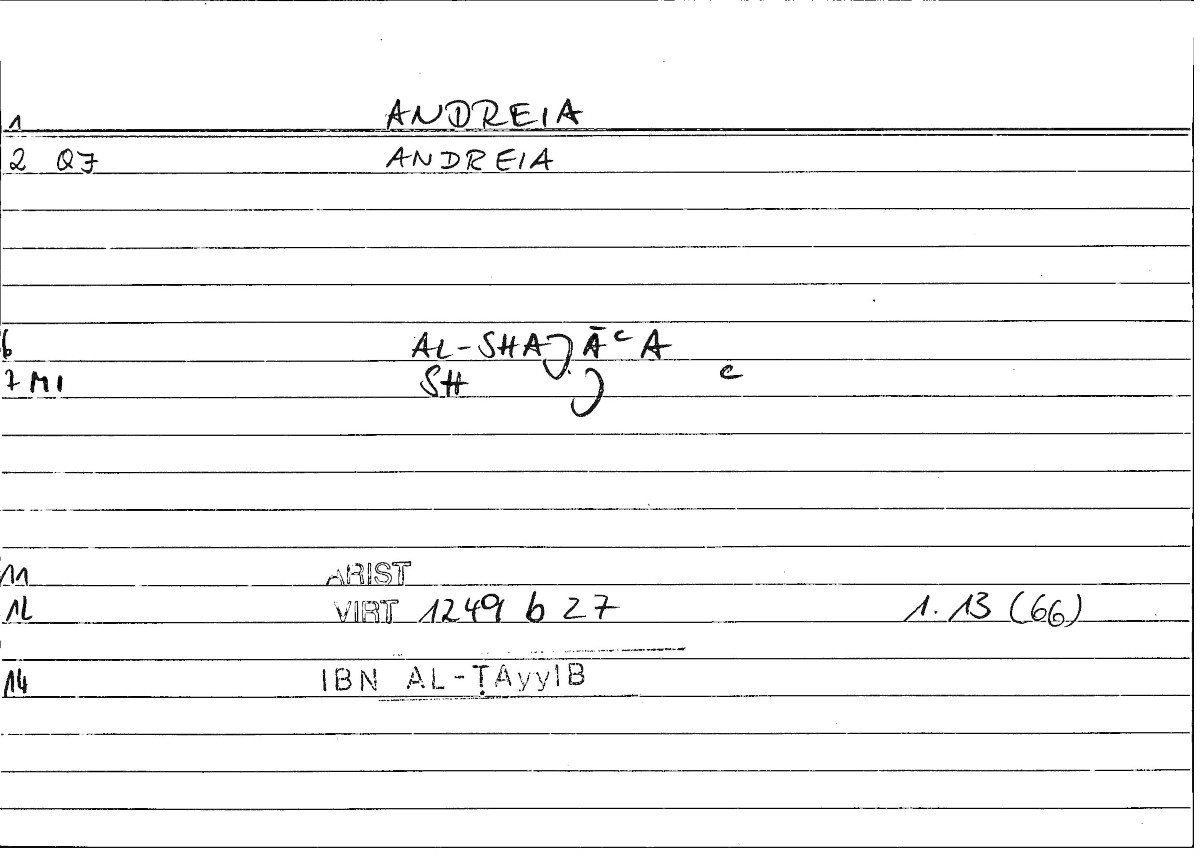 1 ANDREIA
2 QJ ANDREIA
6 AL-SHAJĀᶜA
7 MI SH J ᶜ
11 ARIST
12 VIRT 1249 b 27 1.13 (66)
14 IBN AL-ṬAyyIB